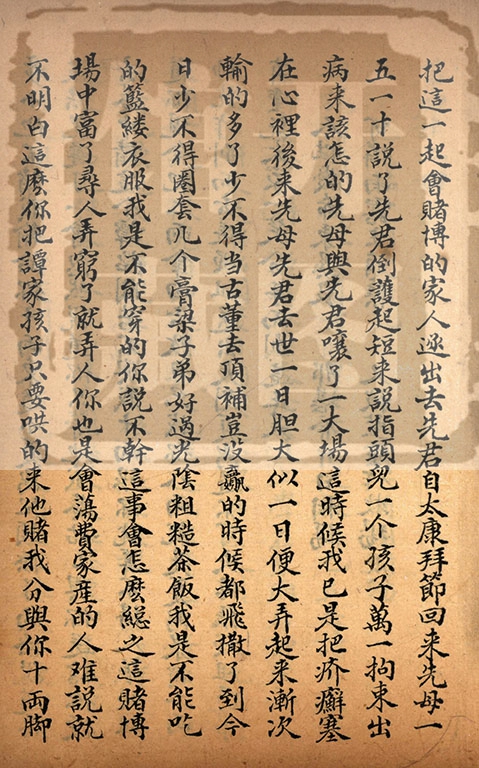 把這一起會賭博的家人逐出去先君自太康拜節回来先母一
五一十説了先君倒護起短来説指頭兒一个孩子萬一拘束出
病来該怎的先母與先君嚷了一大場這時候我已是把疥癬塞
在心裡後来先母先君去世一日胆大似一日便大弄起来漸次
輸的多了少不得当古董去頂補豈没贏的時候都飛撒了到今
日少不得圈套几个膏粱子弟好過光陰粗糙茶飯我是不能吃
的籃縷衣服我是不能穿的你説不幹這事會怎麽総之這賭博
場中富了尋人弄窮了就弄人你也是會蕩費家産的人难説就
不明白這麽你把譚家孩子只要哄的来他賭我分與你十両脚